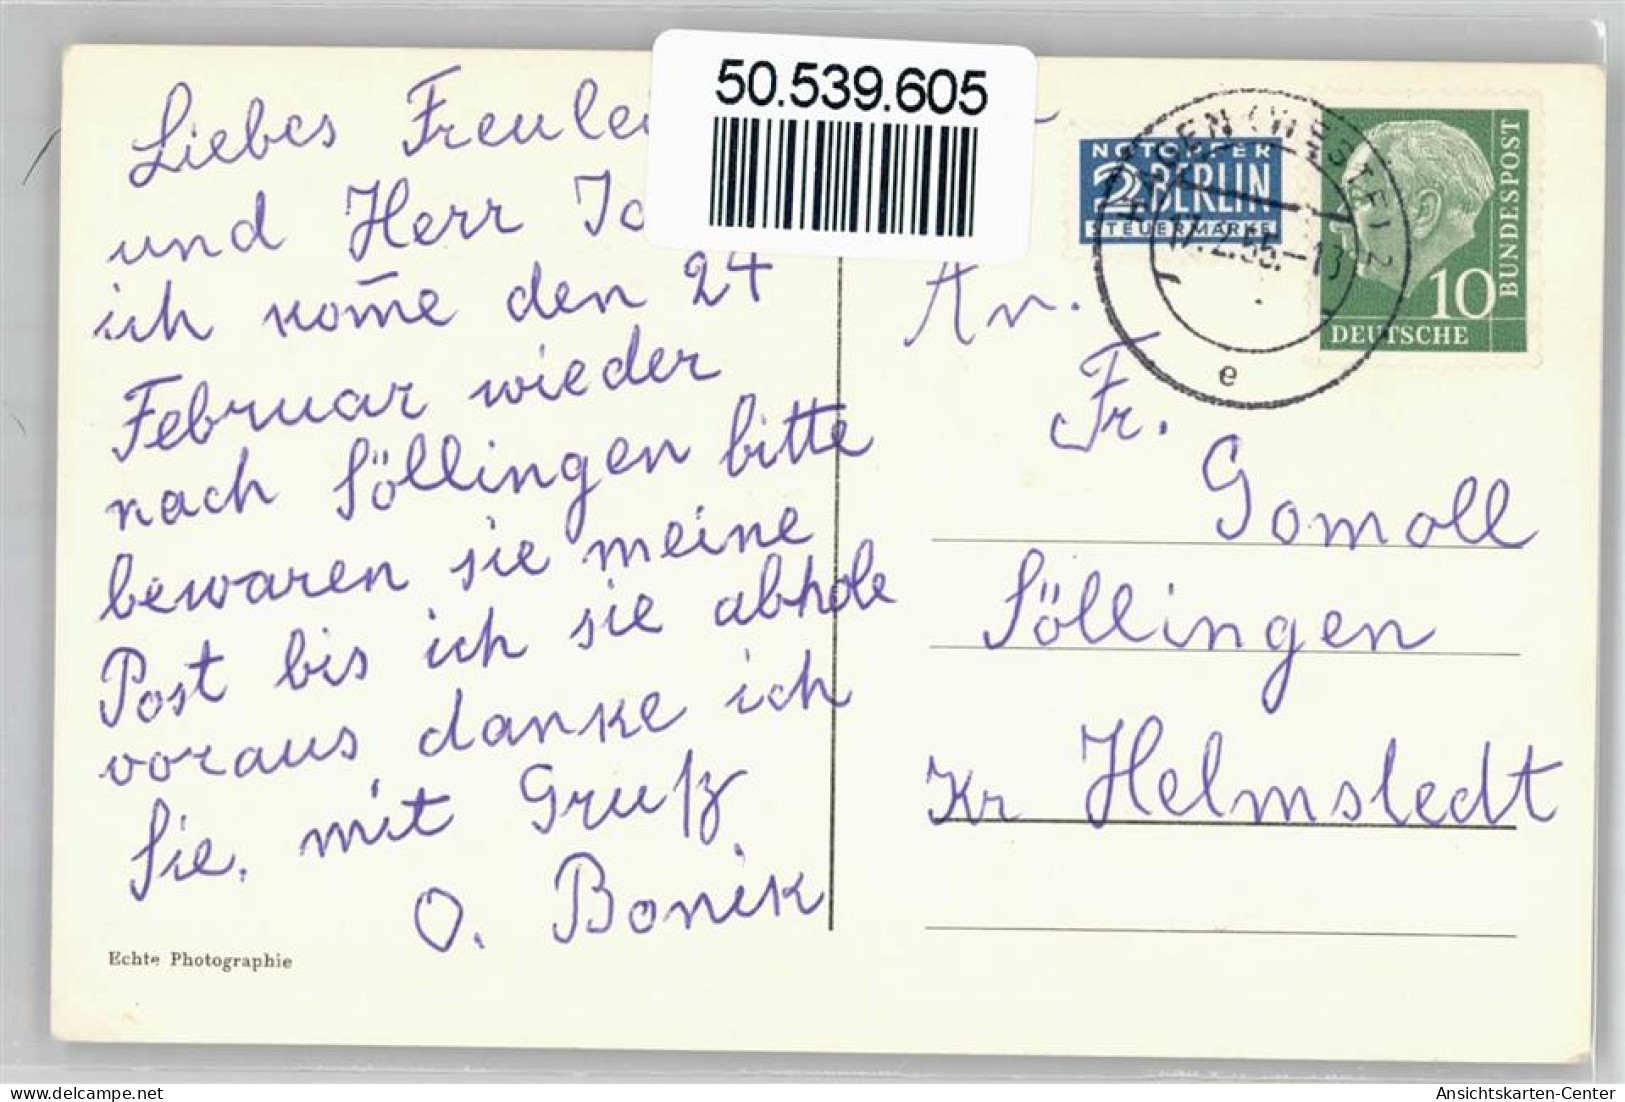 50.539.605
Liebes
und Herr
ich kome den 24
Februar wieder
nach Söllingen bitte
bewaren sie meine
Post bis ich sie abhole
voraus danke ich
Sie, mit Gruß
O. Bonik
Echte Photographie
NOTOPFER
2 BERLIN
STEUERMARKE
HAGEN (WESTF) 2
17.2.55.-13
e
10
DEUTSCHE
BUNDESPOST
An.
Fr.
Gomoll
Söllingen
Kr Helmstedt
Ansichtskarten-Center
www.delcampe.net